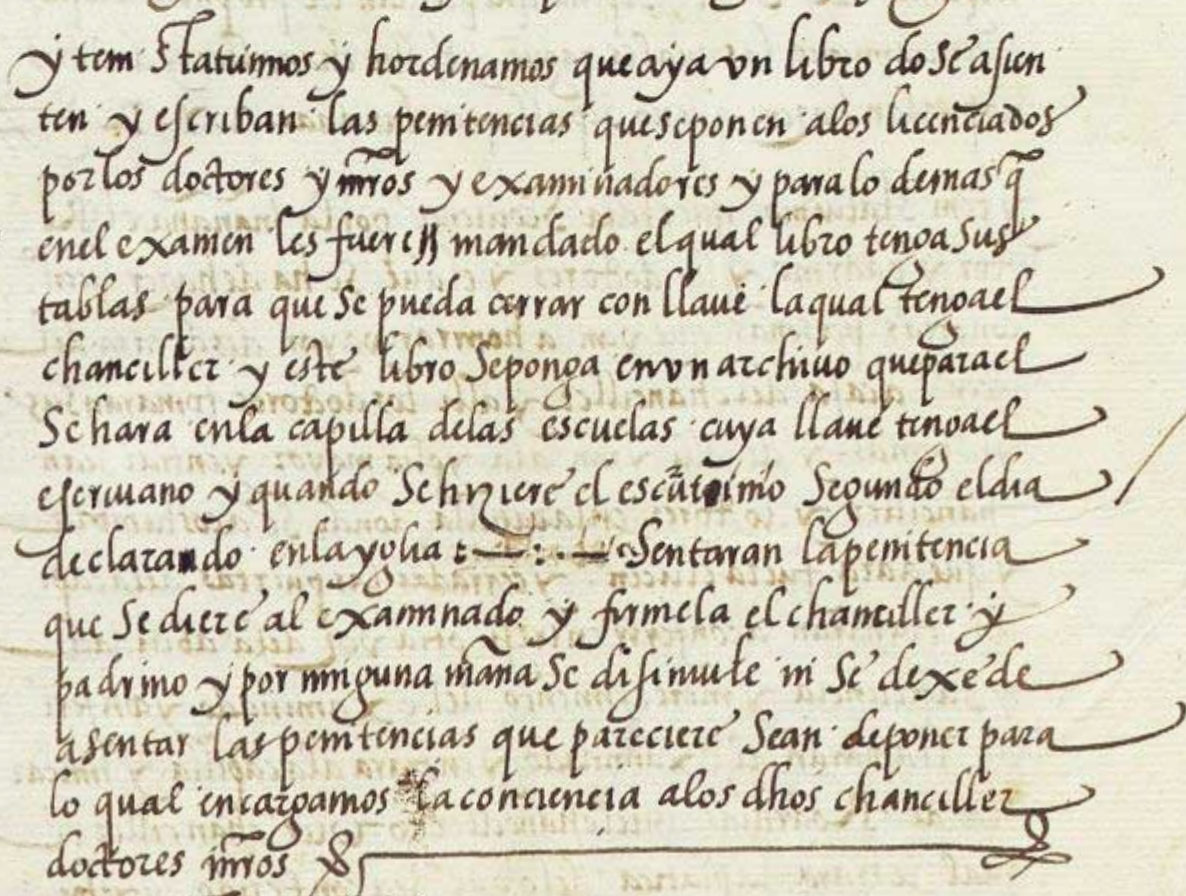 ytem Statuimos y hordenamos que aya vn libro do Se asien
ten y escriban las penitencias que se ponen a los licenciados
por los doctores y mr̃os y examinadores y para lo demas q̃
en el examen les fueren mandado el qual libro tenga Sus
tablas para que Se pueda cerrar con llaue la qual tenga el
chanciller y este libro Se ponga en vn archiuo que para el
Se hara en la capilla de las escuelas cuya llaue tenga el
escriuano y quando Se hiziere el escũtrimio Segundo el dia
declarando en la yglia :—:.— Sentaran la penitencia
que Se diere al examinado y firmela el chanciller y
padrino y por ninguna mañа Se disimule ni Se dexe de
asentar las penitencias que pareciere Sean de poner para
lo qual encargamos la conciencia a los dhos chanciller
doctores mr̃os